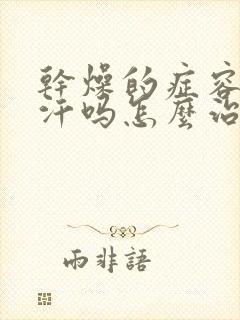 幹燥的症容
汗吗怎麼治
雨非語